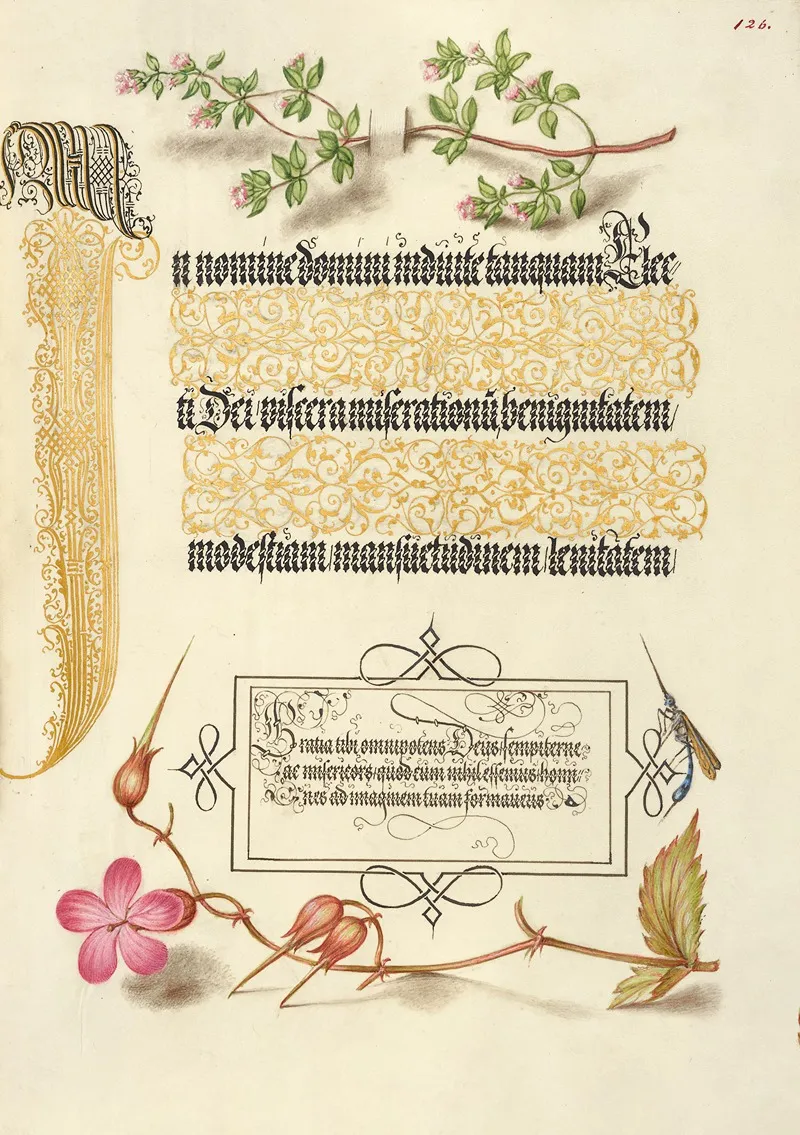 126.
In nomine domini induite tanquam Elec-
ti Dei viscera miserationū benignitatem
modestiam mansuetudinem lenitatem
Gratia tibi omnipotens Deus sempiterne
ac misericors quod cum nihil essemus homi-
nes ad imaginem tuam formaveris